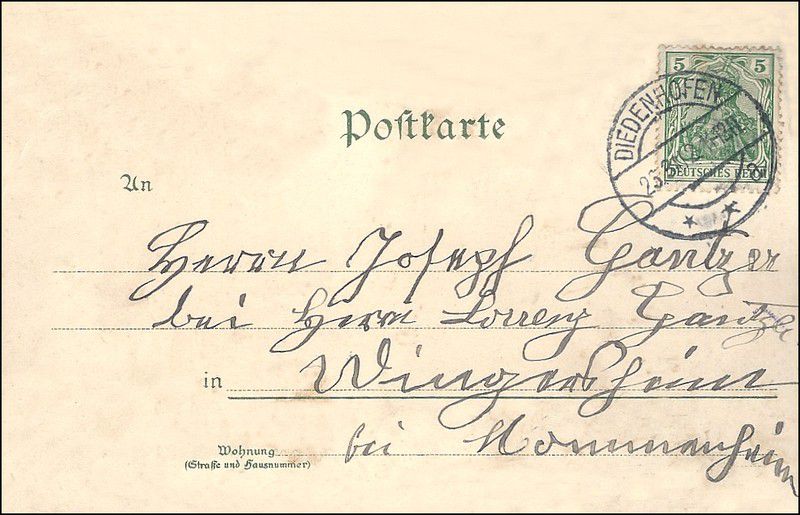 5 5
DIEDENHOFEN
DEUTSCHES REICH
Postkarte
An
Herrn Joseph Gantzer
bei Herrn Lorrenz Gantzer
in Wingersheim
Wohnung bei Mommenheim
(Straße und Hausnummer)